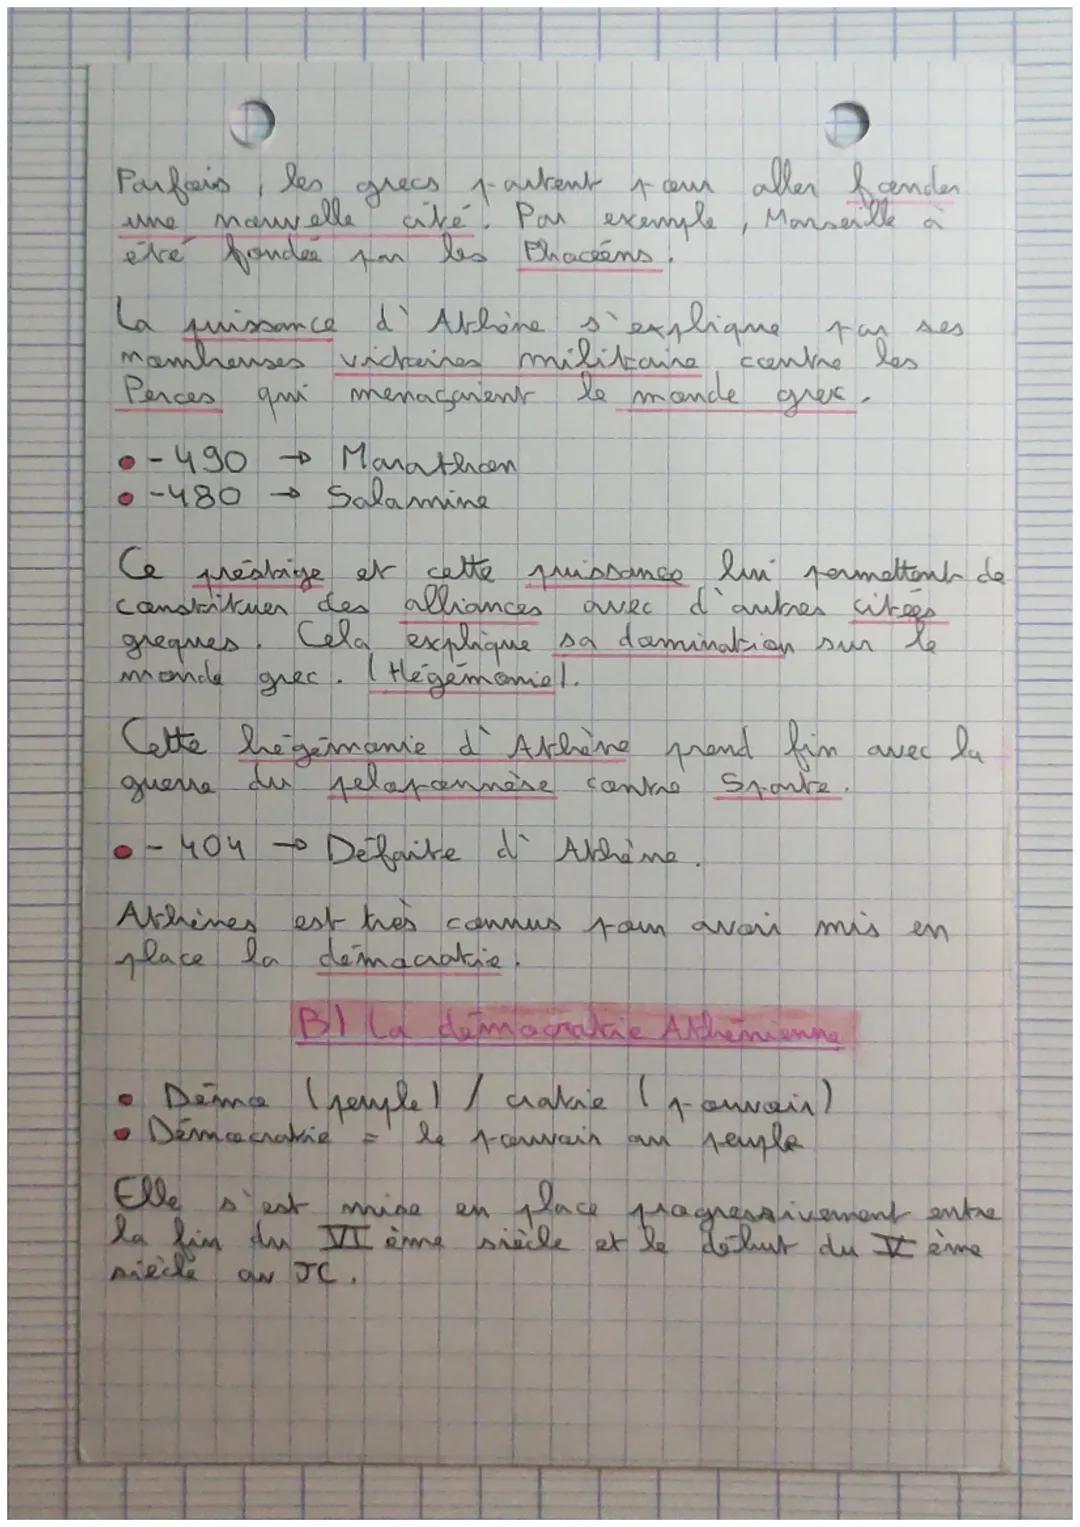 Parfois, les grecs partent pour aller fonder
une nouvelle cité. Par exemple, Marseille à
été fondée par les Phocéens.
La puissance d'Athène s'explique par ses
nombreuses victoires militaire contre les
Perces qui menaçaient le monde grec.
• -490 → Marathon
• -480 → Salamine
Ce préstige et cette puissance lui permettent de
constituer des alliances avec d'autres citées
greques. Cela explique sa domination sur le
monde grec. (Hégémonie).
Cette hégémonie d'Athène prend fin avec la
guerre du peloponnèse contre Sparte.
• -404 → Défaite d'Athène.
Athènes est très connus pour avoir mis en
place la démocratie.
B) La démocratie Athénienne
• Démo (peuple) / cratie (pouvoir)
• Démocratie = le pouvoir au peuple
Elle s'est mise en place progressivement entre
la fin du VI ème siècle et le début du V ème
siècle av JC.